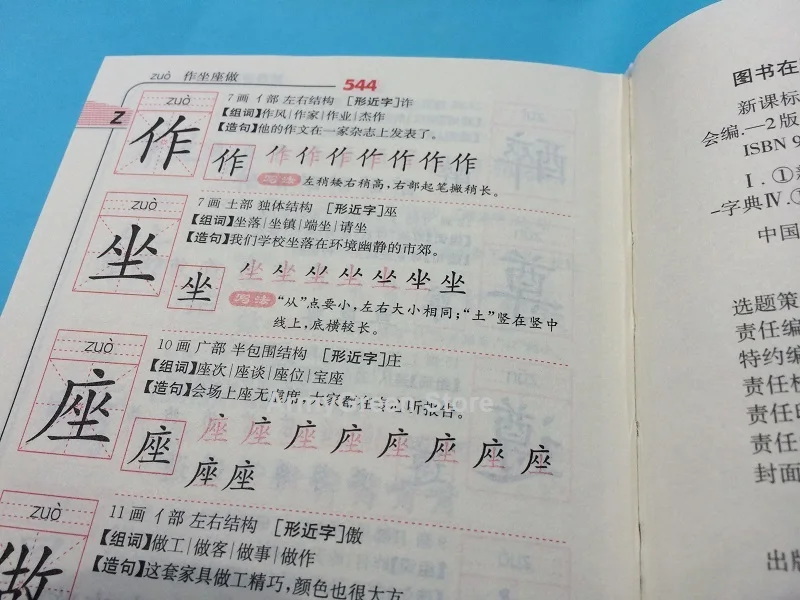 zuò 作坐座做
544
Z
zuò
作
7画 亻部 左右结构 [形近字]诈
【组词】作风|作家|作业|杰作
【造句】他的作文在一家杂志上发表了。
作
写法 左稍矮右稍高，右部起笔撇稍长。
zuò
坐
7画 土部 独体结构 [形近字]巫
【组词】坐落|坐镇|端坐|请坐
【造句】我们学校坐落在环境幽静的市郊。
坐
写法 “从”点要小，左右大小相同；“土”竖在竖中
线上，底横较长。
zuò
座
10画 广部 半包围结构 [形近字]庄
【组词】座次|座谈|座位|宝座
【造句】会场上座无虚席，大家都在 听报告。
座
Store
zuò
做
11画 亻部 左右结构 [形近字]傲
【组词】做工|做客|做事|做作
【造句】这套家具做工精巧，颜色也很大方
图书在
新课标
会编.—2版
ISBN 9
Ⅰ.①
-字典Ⅳ.①
中国
选题策
责任编
特约编
责任校
责任印
责任
封面
出版